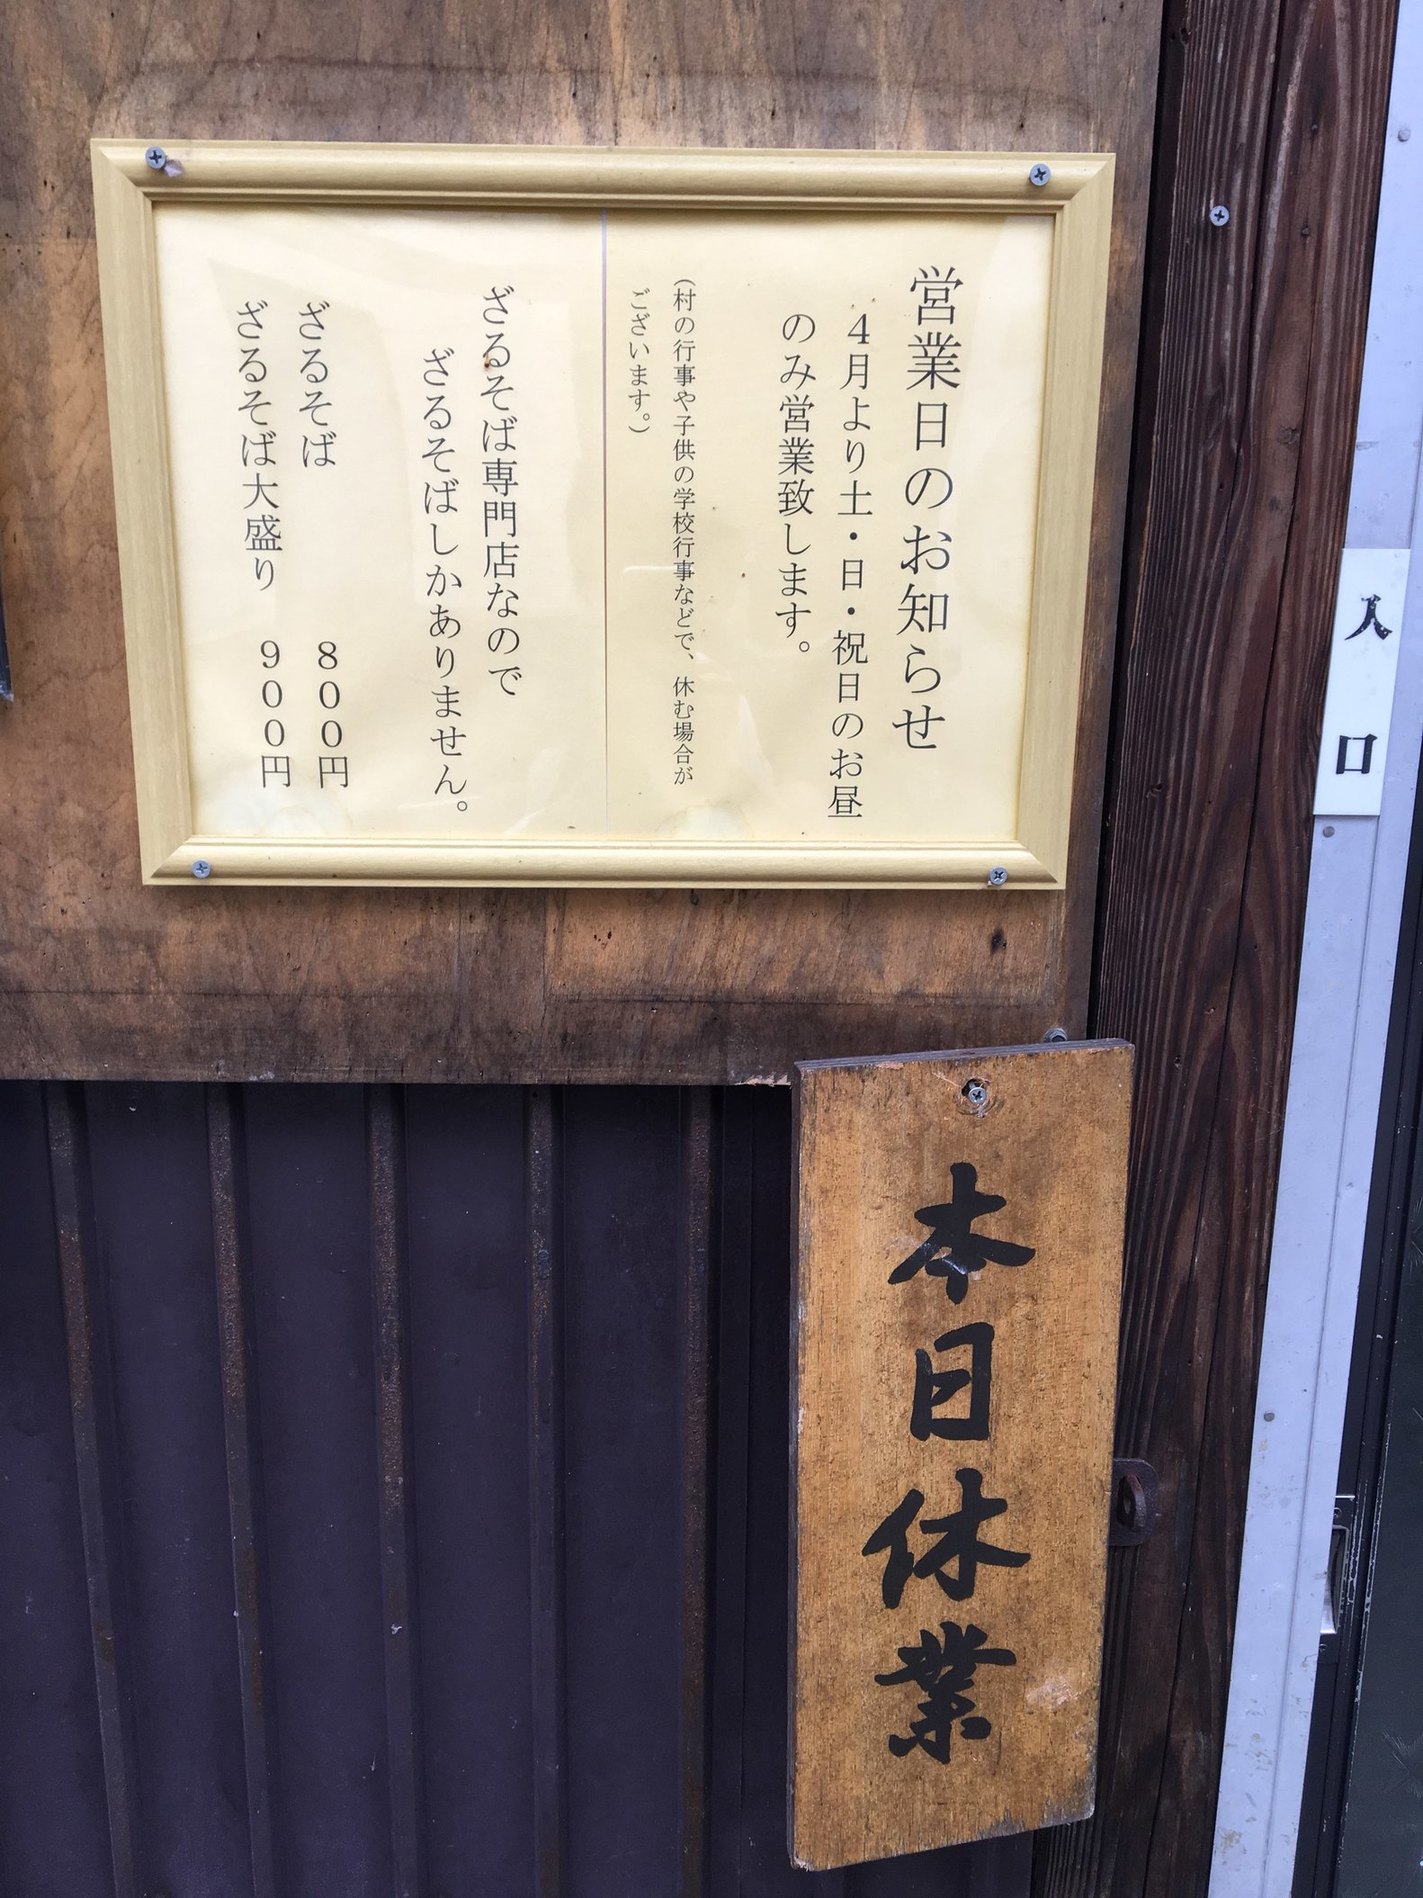 営業日のお知らせ
４月より土・日・祝日のお昼
のみ営業致します。
（村の行事や子供の学校行事などで、休む場合が
ございます。）
ざるそば専門店なので
ざるそばしかありません。
ざるそば　８００円
ざるそば大盛り　９００円
入口
本日休業